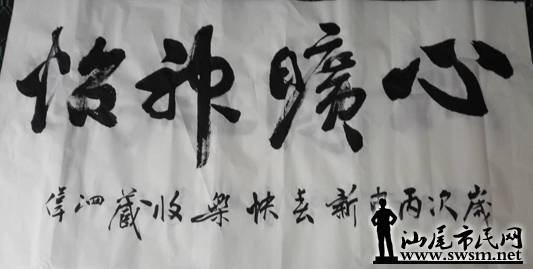 心曠神怡
歲次丙申新春快樂收藏泗
汕尾市民网
www.swsm.net